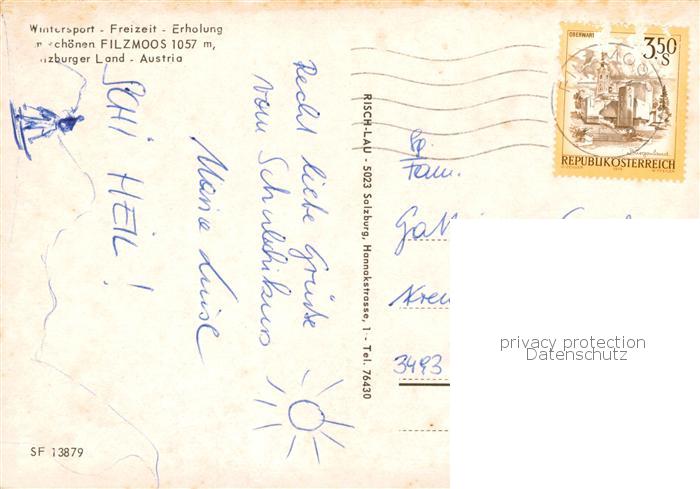 Wintersport - Freizeit - Erholung
schönen FILZMOOS 1057 m,
zburger Land - Austria
SCHI HEIL!
Recht liebe Grüße
vom Schulschikurs
Marie Luise
RISCH-LAU - 5023 Salzburg, Hannakstrasse, 1 - Tel. 76430
OBERWART
3.50
S
REPUBLIK ÖSTERREICH
Fam.
3493
privacy protection
Datenschutz
SF 13879